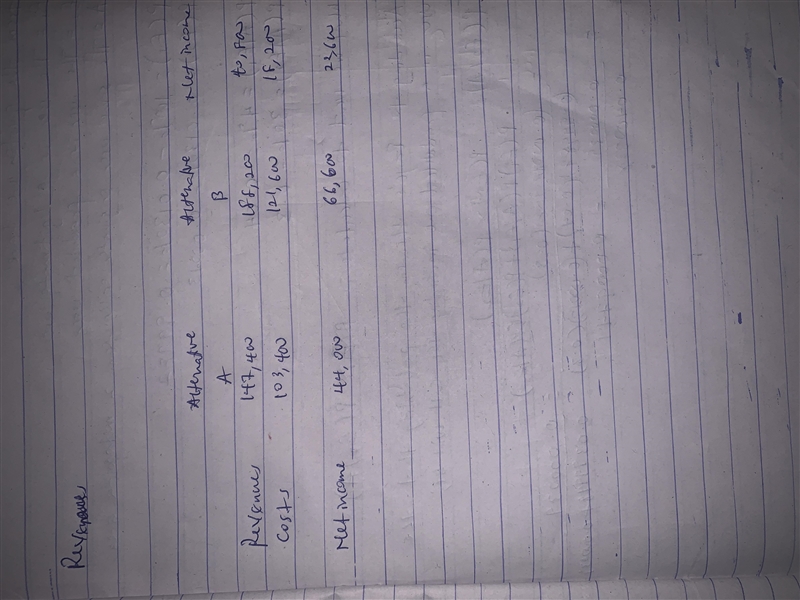 Alternative Alternative Net income
A B
Revenues 147,400 188,200 40,800
Costs 103,400 121,600 18,200
Net income 44,000 66,600